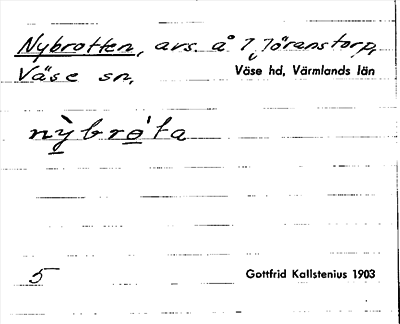 Nybrotten, avs. å 7, Jöranstorp,
Väse sn, Väse hd, Värmlands län
nỳbro̲'ta
5 Gottfrid Kallstenius 1903